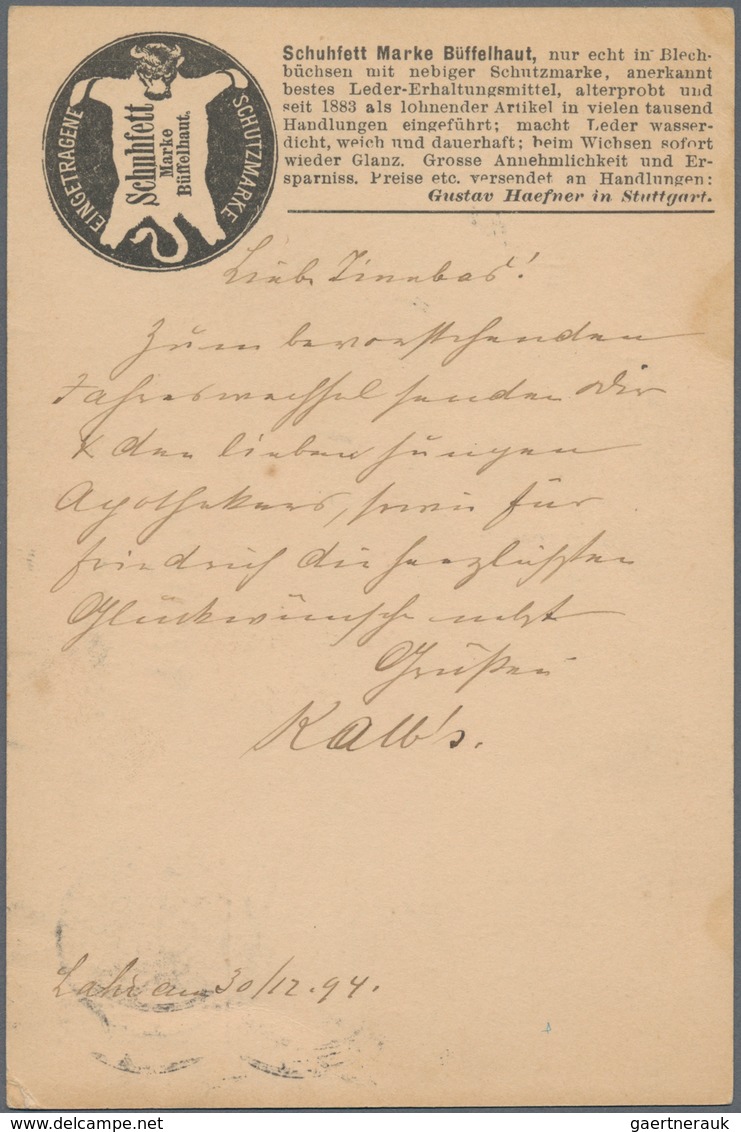 EINGETRAGENE SCHUTZMARKE
Schuhfett
Marke
Büffelhaut.
Schuhfett Marke Büffelhaut, nur echt in Blech-
büchsen mit nebiger Schutzmarke, anerkannt
bestes Leder-Erhaltungsmittel, alterprobt und
seit 1883 als lohnender Artikel in vielen tausend
Handlungen eingeführt; macht Leder wasser-
dicht, weich und dauerhaft; beim Wichsen sofort
wieder Glanz. Grosse Annehmlichkeit und Er-
sparniss. Preise etc. versendet an Handlungen:
Gustav Haefner in Stuttgart.
Liebe
Zum bevorstehenden
Jahreswechsel senden Dir
& den lieben jungen
Apothekers, sowie für
Friedrich die herzlichsten
Glückwünsche nebst
Grüßen
Kalb's.
Lahr am 30/12.94.
gaertnerauk @ delcampe.net